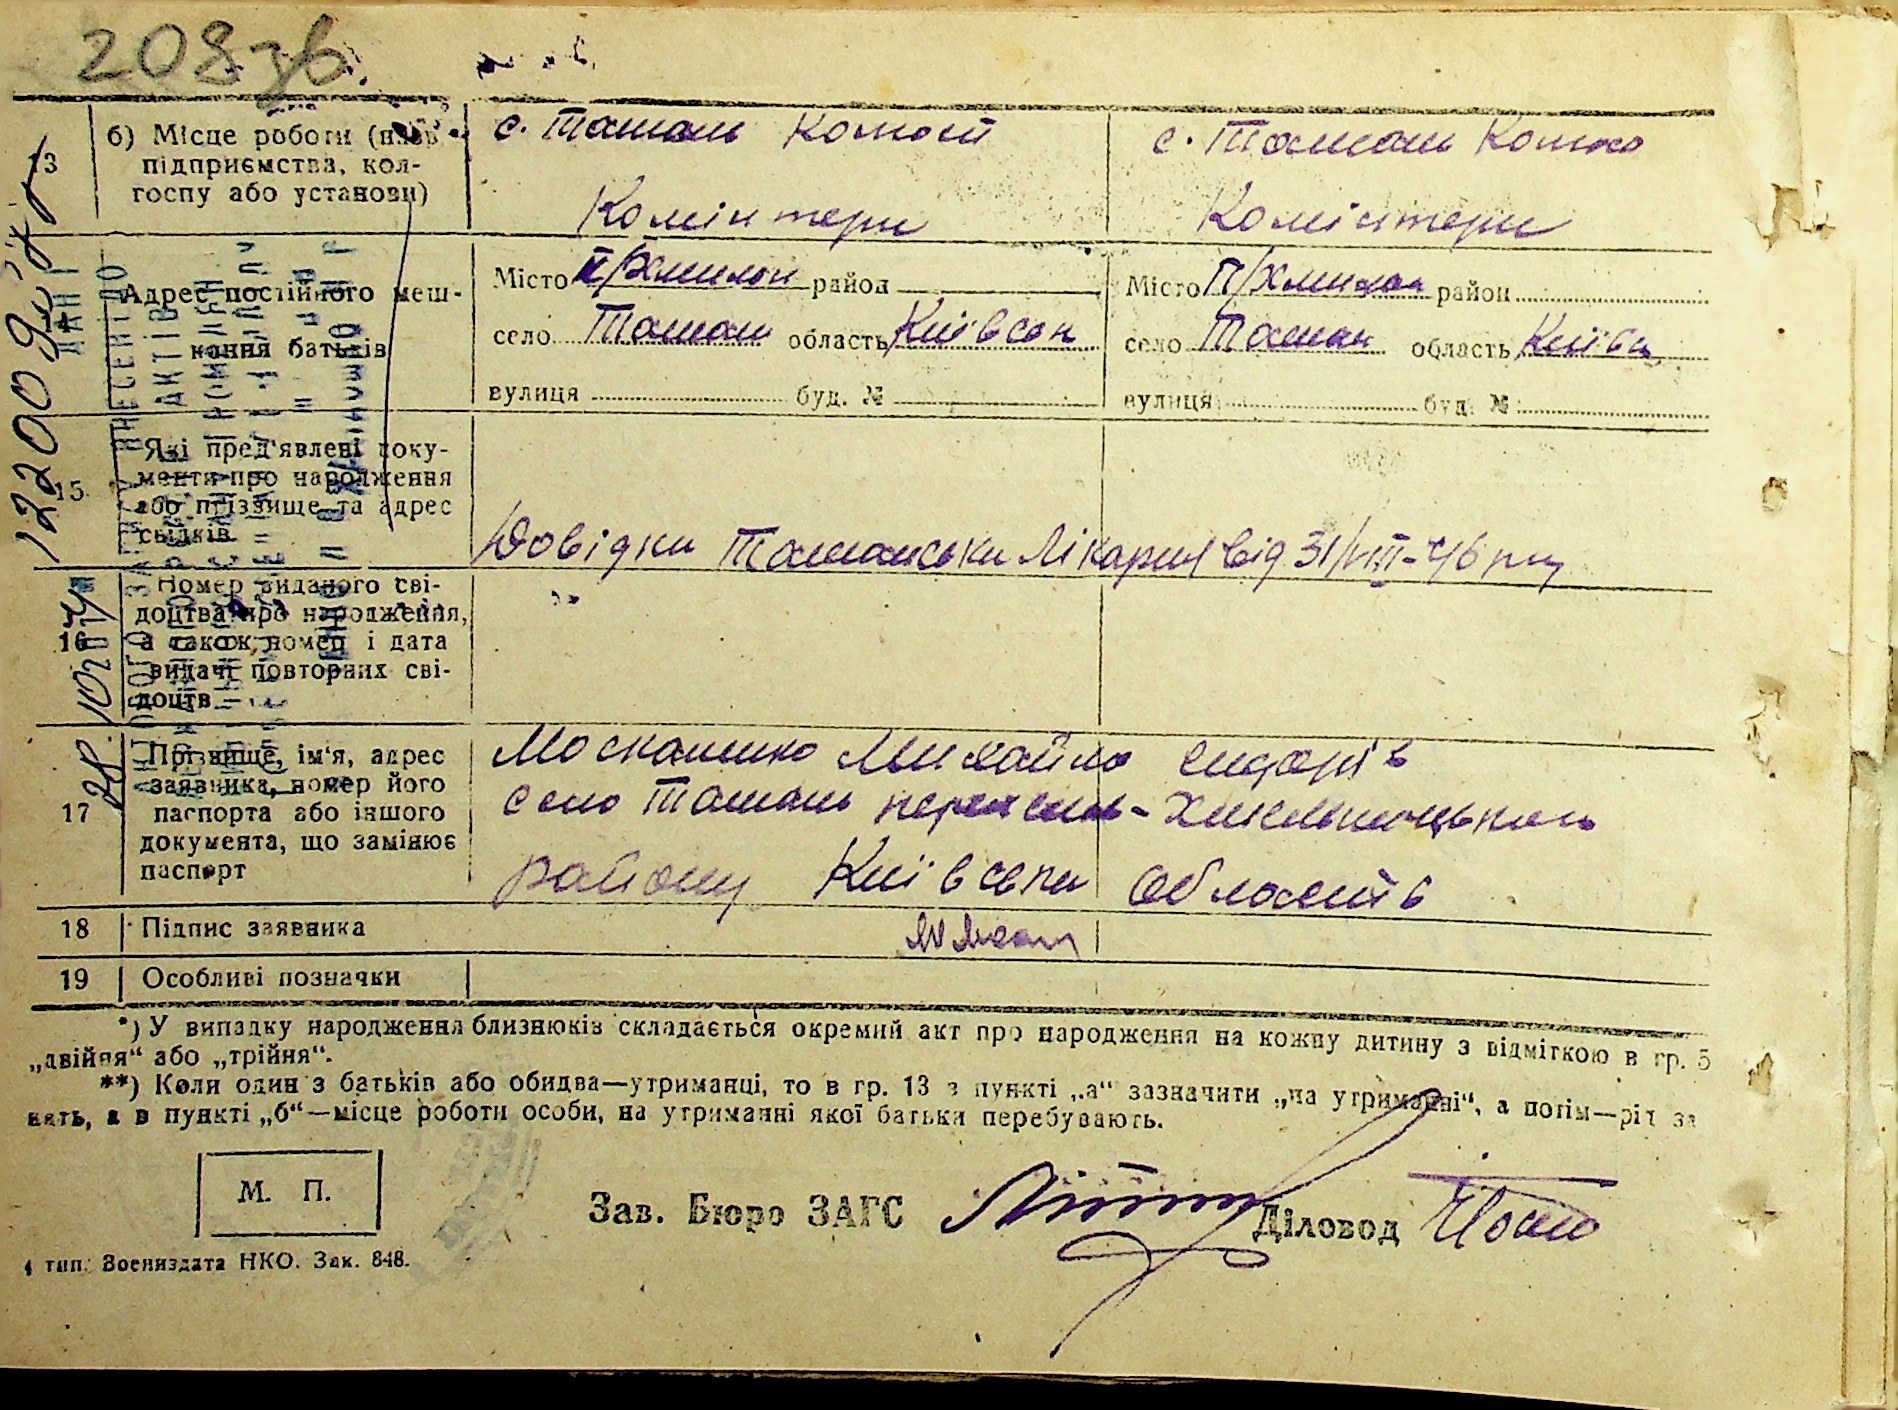 208 зв.
13
б) Місце роботи (назв
підприємства, кол-
госпу або установи)
с. Ташань Колгосп
Комінтерн
с. Ташань
Комінтерн
Адрес постійного меш-
кання батьків
Місто П/Хмельн район
село Ташань область Київськ
вулиця буд. №
Місто П/Хмельн район
село Ташань область Київ
вулиця буд. №
15
Які пред'явлені доку-
менти про народження
або прізвище та адрес
свідків
Довідки Ташанськи Лікарні від 31/VIII-46 р
16
Номер виданого сві-
доцтва про народження,
а також номер і дата
видачі повторних сві-
доцтв
17
Прізвище, ім'я, адрес
заявника, номер його
паспорта або іншого
документа, що замінює
паспорт
Москаленко Михайло Сидорів
село Ташань переяслав-Хмельницького
району Київська Область
18
Підпис заявника
19
Особливі позначки
*) У випадку народження близнюків складається окремий акт про народження на кожну дитину з відміткою в гр. 5
„двійня“ або „трійня“.
**) Коли один з батьків або обидва—утриманці, то в гр. 13 в пункті „а“ зазначити „на утриманні“, а потім—рід за
нять, а в пункті „б“—місце роботи особи, на утриманні якої батьки перебувають.
М. П.
Зав. Бюро ЗАГС
Діловод
4 тип. Воениздата НКО. Зак. 848.